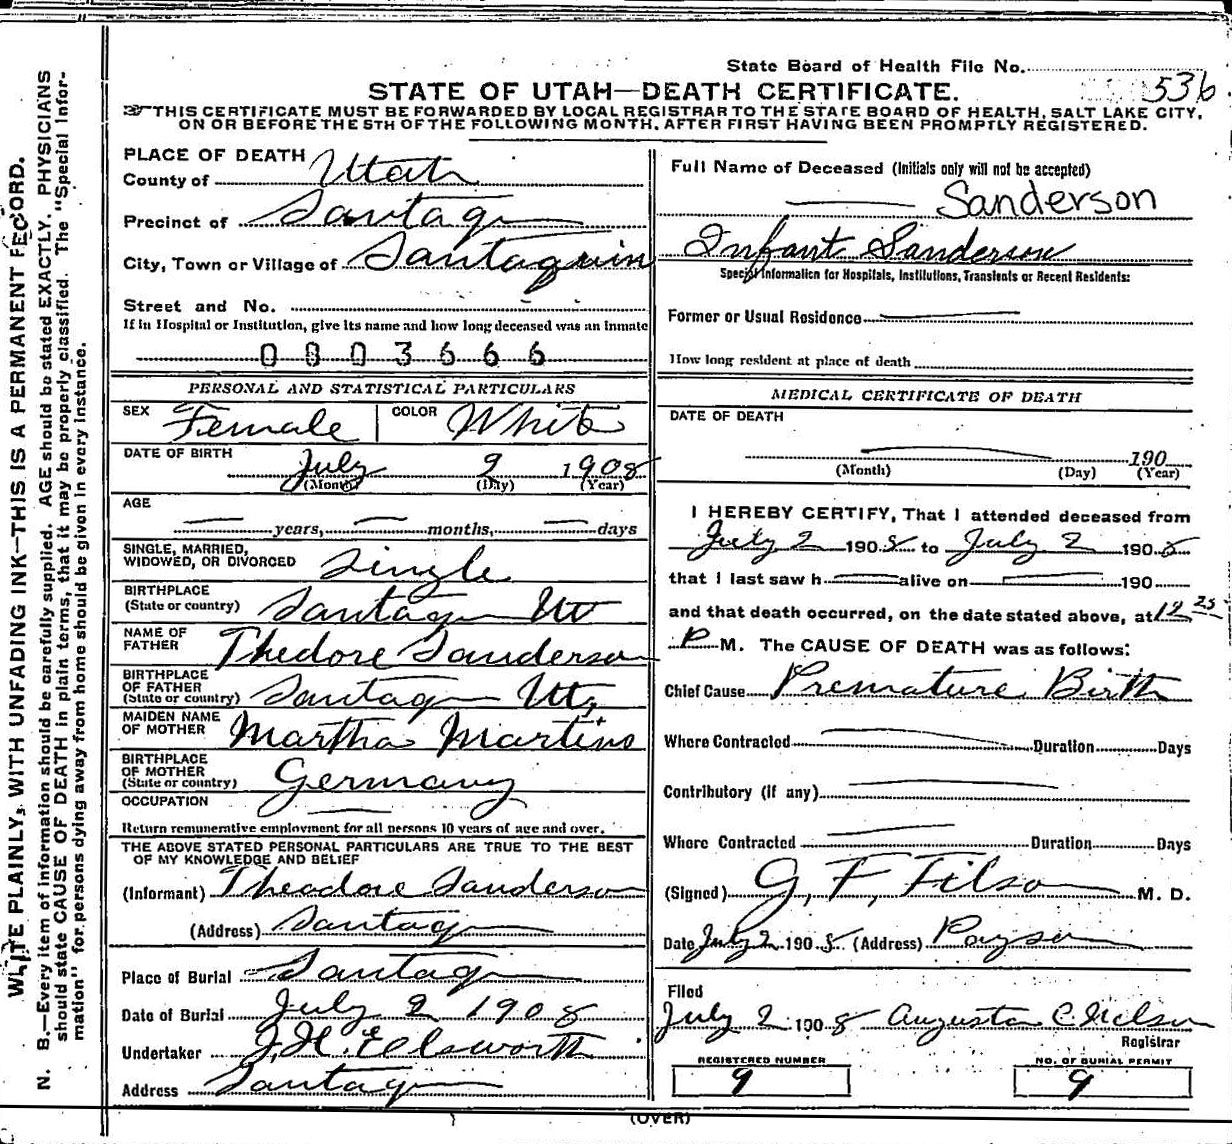 State Board of Health File No. 536
STATE OF UTAH—DEATH CERTIFICATE.
THIS CERTIFICATE MUST BE FORWARDED BY LOCAL REGISTRAR TO THE STATE BOARD OF HEALTH, SALT LAKE CITY,
ON OR BEFORE THE 5TH OF THE FOLLOWING MONTH, AFTER FIRST HAVING BEEN PROMPTLY REGISTERED.
WRITE PLAINLY, WITH UNFADING INK—THIS IS A PERMANENT RECORD.
N. B.—Every item of information should be carefully supplied. AGE should be stated EXACTLY. PHYSICIANS
should state CAUSE OF DEATH in plain terms, that it may be properly classified. The "Special Infor-
mation" for persons dying away from home should be given in every instance.
PLACE OF DEATH
County of Utah
Precinct of Santaq
City, Town or Village of Santaquin
Street and No.
If in Hospital or Institution, give its name and how long deceased was an Inmate
0803666
PERSONAL AND STATISTICAL PARTICULARS
SEX Female COLOR White
DATE OF BIRTH
July 2 1908
(Month) (Day) (Year)
AGE
years, months, days
SINGLE, MARRIED,
WIDOWED, OR DIVORCED Single
BIRTHPLACE
(State or country) Santaq Ut
NAME OF
FATHER Thedore Sanderson
BIRTHPLACE
OF FATHER
(State or country) Santaq Ut,
MAIDEN NAME
OF MOTHER Martha Martins
BIRTHPLACE
OF MOTHER
(State or country) Germany
OCCUPATION
Return remunerative employment for all persons 10 years of age and over.
THE ABOVE STATED PERSONAL PARTICULARS ARE TRUE TO THE BEST
OF MY KNOWLEDGE AND BELIEF
(Informant) Theadore Sanderson
(Address) Santaq
Place of Burial Santaq
Date of Burial July 2 1908
Undertaker J. H. Ellsworth
Address Santaq
Full Name of Deceased (Initials only will not be accepted)
Sanderson
Infant Sanderson
Special Information for Hospitals, Institutions, Transients or Recent Residents:
Former or Usual Residence
How long resident at place of death
MEDICAL CERTIFICATE OF DEATH
DATE OF DEATH
190
(Month) (Day) (Year)
I HEREBY CERTIFY, That I attended deceased from
July 2 1908 to July 2 1908
that I last saw h alive on 190
and that death occurred, on the date stated above, at 12 25
P M. The CAUSE OF DEATH was as follows:
Chief Cause Premature Birth
Where Contracted Duration Days
Contributory (if any)
Where Contracted Duration Days
(Signed) G, F, Filson M. D.
Date July 2 1908 (Address) Payson
Filed
July 2 1908 Augusta C. Nelson
Registrar
REGISTERED NUMBER
9
NO. OF BURIAL PERMIT
9
(OVER)